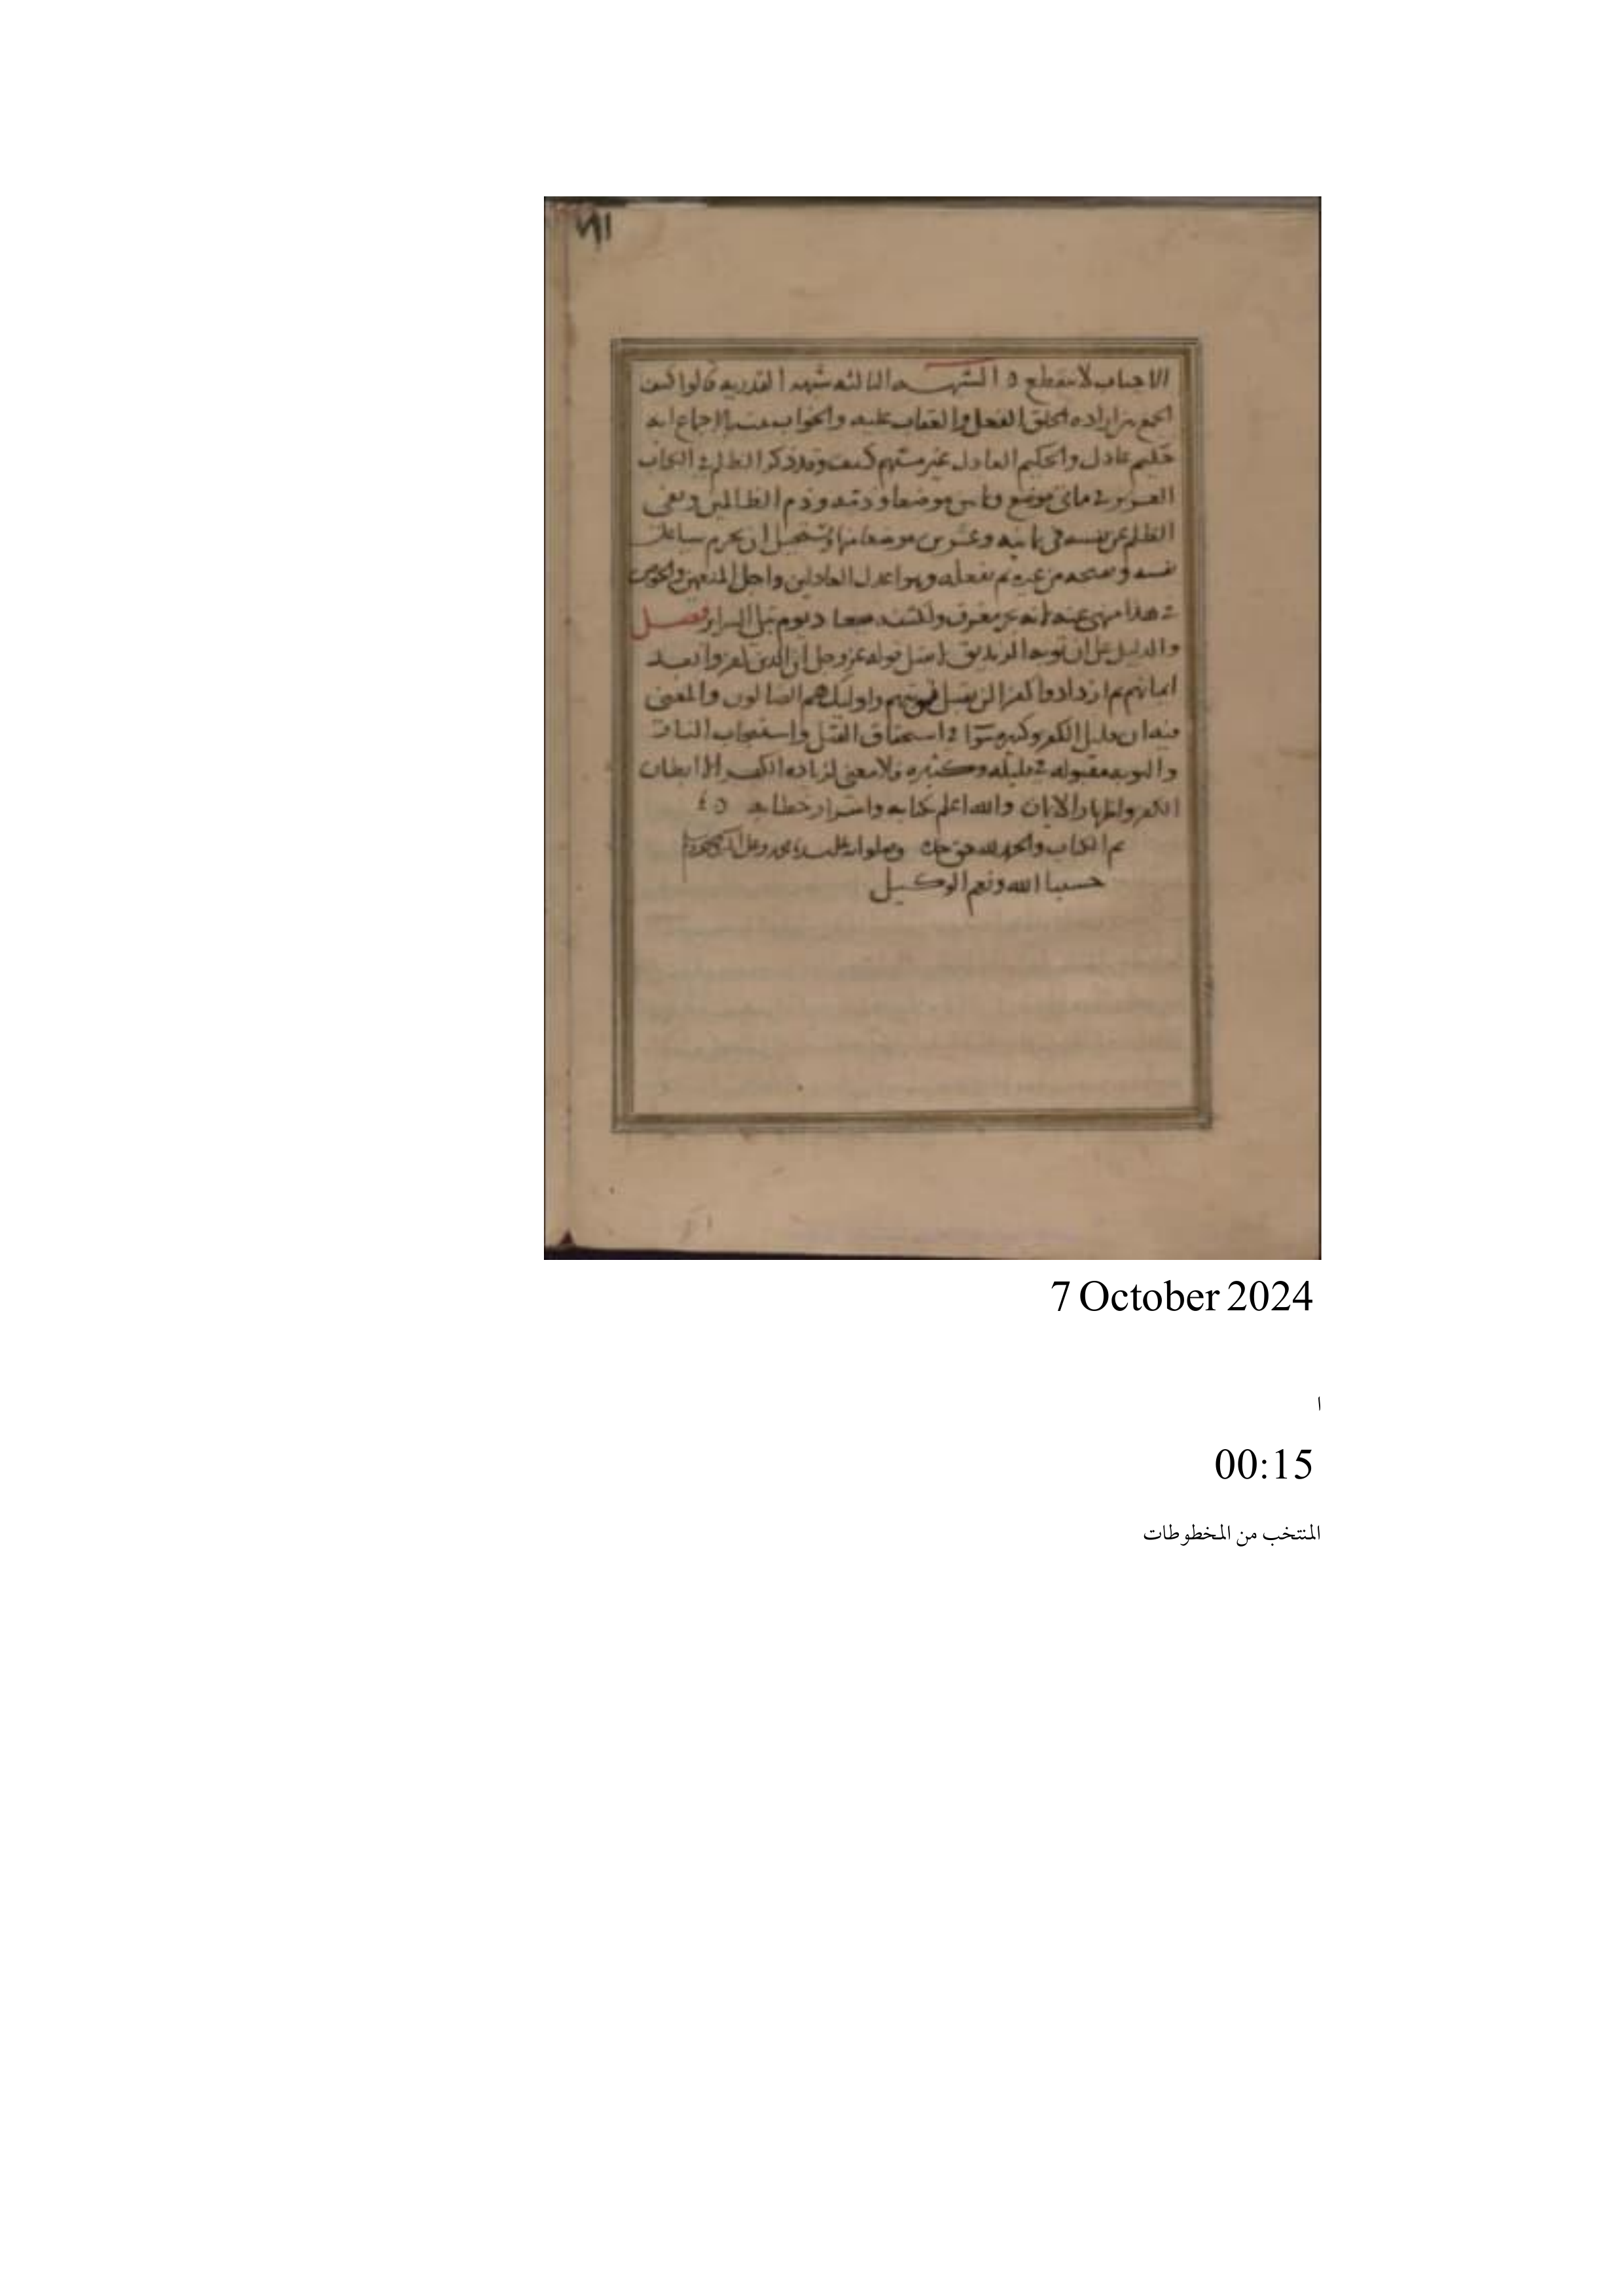 الاجتباب لا ينقطع ه الشبهه الثالثه شبهه القدريه قالوا كيف
الجمع بين اراده الخلق الفعل والعقاب عليه والجواب الاجماع انه
حكيم عادل والحكيم العادل غير متهم كيف وقد ذكر الظلم في الكتاب
العزيز في مائتى موضع موضعا وذمه وذم الظالمين ونفى
الظلم عن نفسه في ثمانيه وعشرين موضعا منها ويستحيل ان يحرم شيا على
نفسه من غيره ثم يفعله وهو اعدل العادلين واجل المنعمين والخوض
في هذا منهى عنه لانه بحر مغرق يوم تبلى السراير فصل
والدليل على ان توبه الزنديق لا تقبل قوله عز وجل ان الذين كفروا بعد
ايمانهم ثم ازدادوا كفرا لن تقبل توبتهم واوليك هم الضالون والمعنى
فيه ان قليل الكفر وكثيره سوآ في استحقاق القتل
والتوبه مقبوله في قليله وكثيره فلا معنى لزياده الكفر الا ابطان
الكفر واظهار الايمان والله اعلم بكتابه واسرار خطابه ه
تم الكتاب والحمد لله حق حمده وصلواته على سيدنا محمد وعلى اله
حسبنا الله ونعم الوكيل
7 October 2024
ا
00:15
المنتخب من المخطوطات